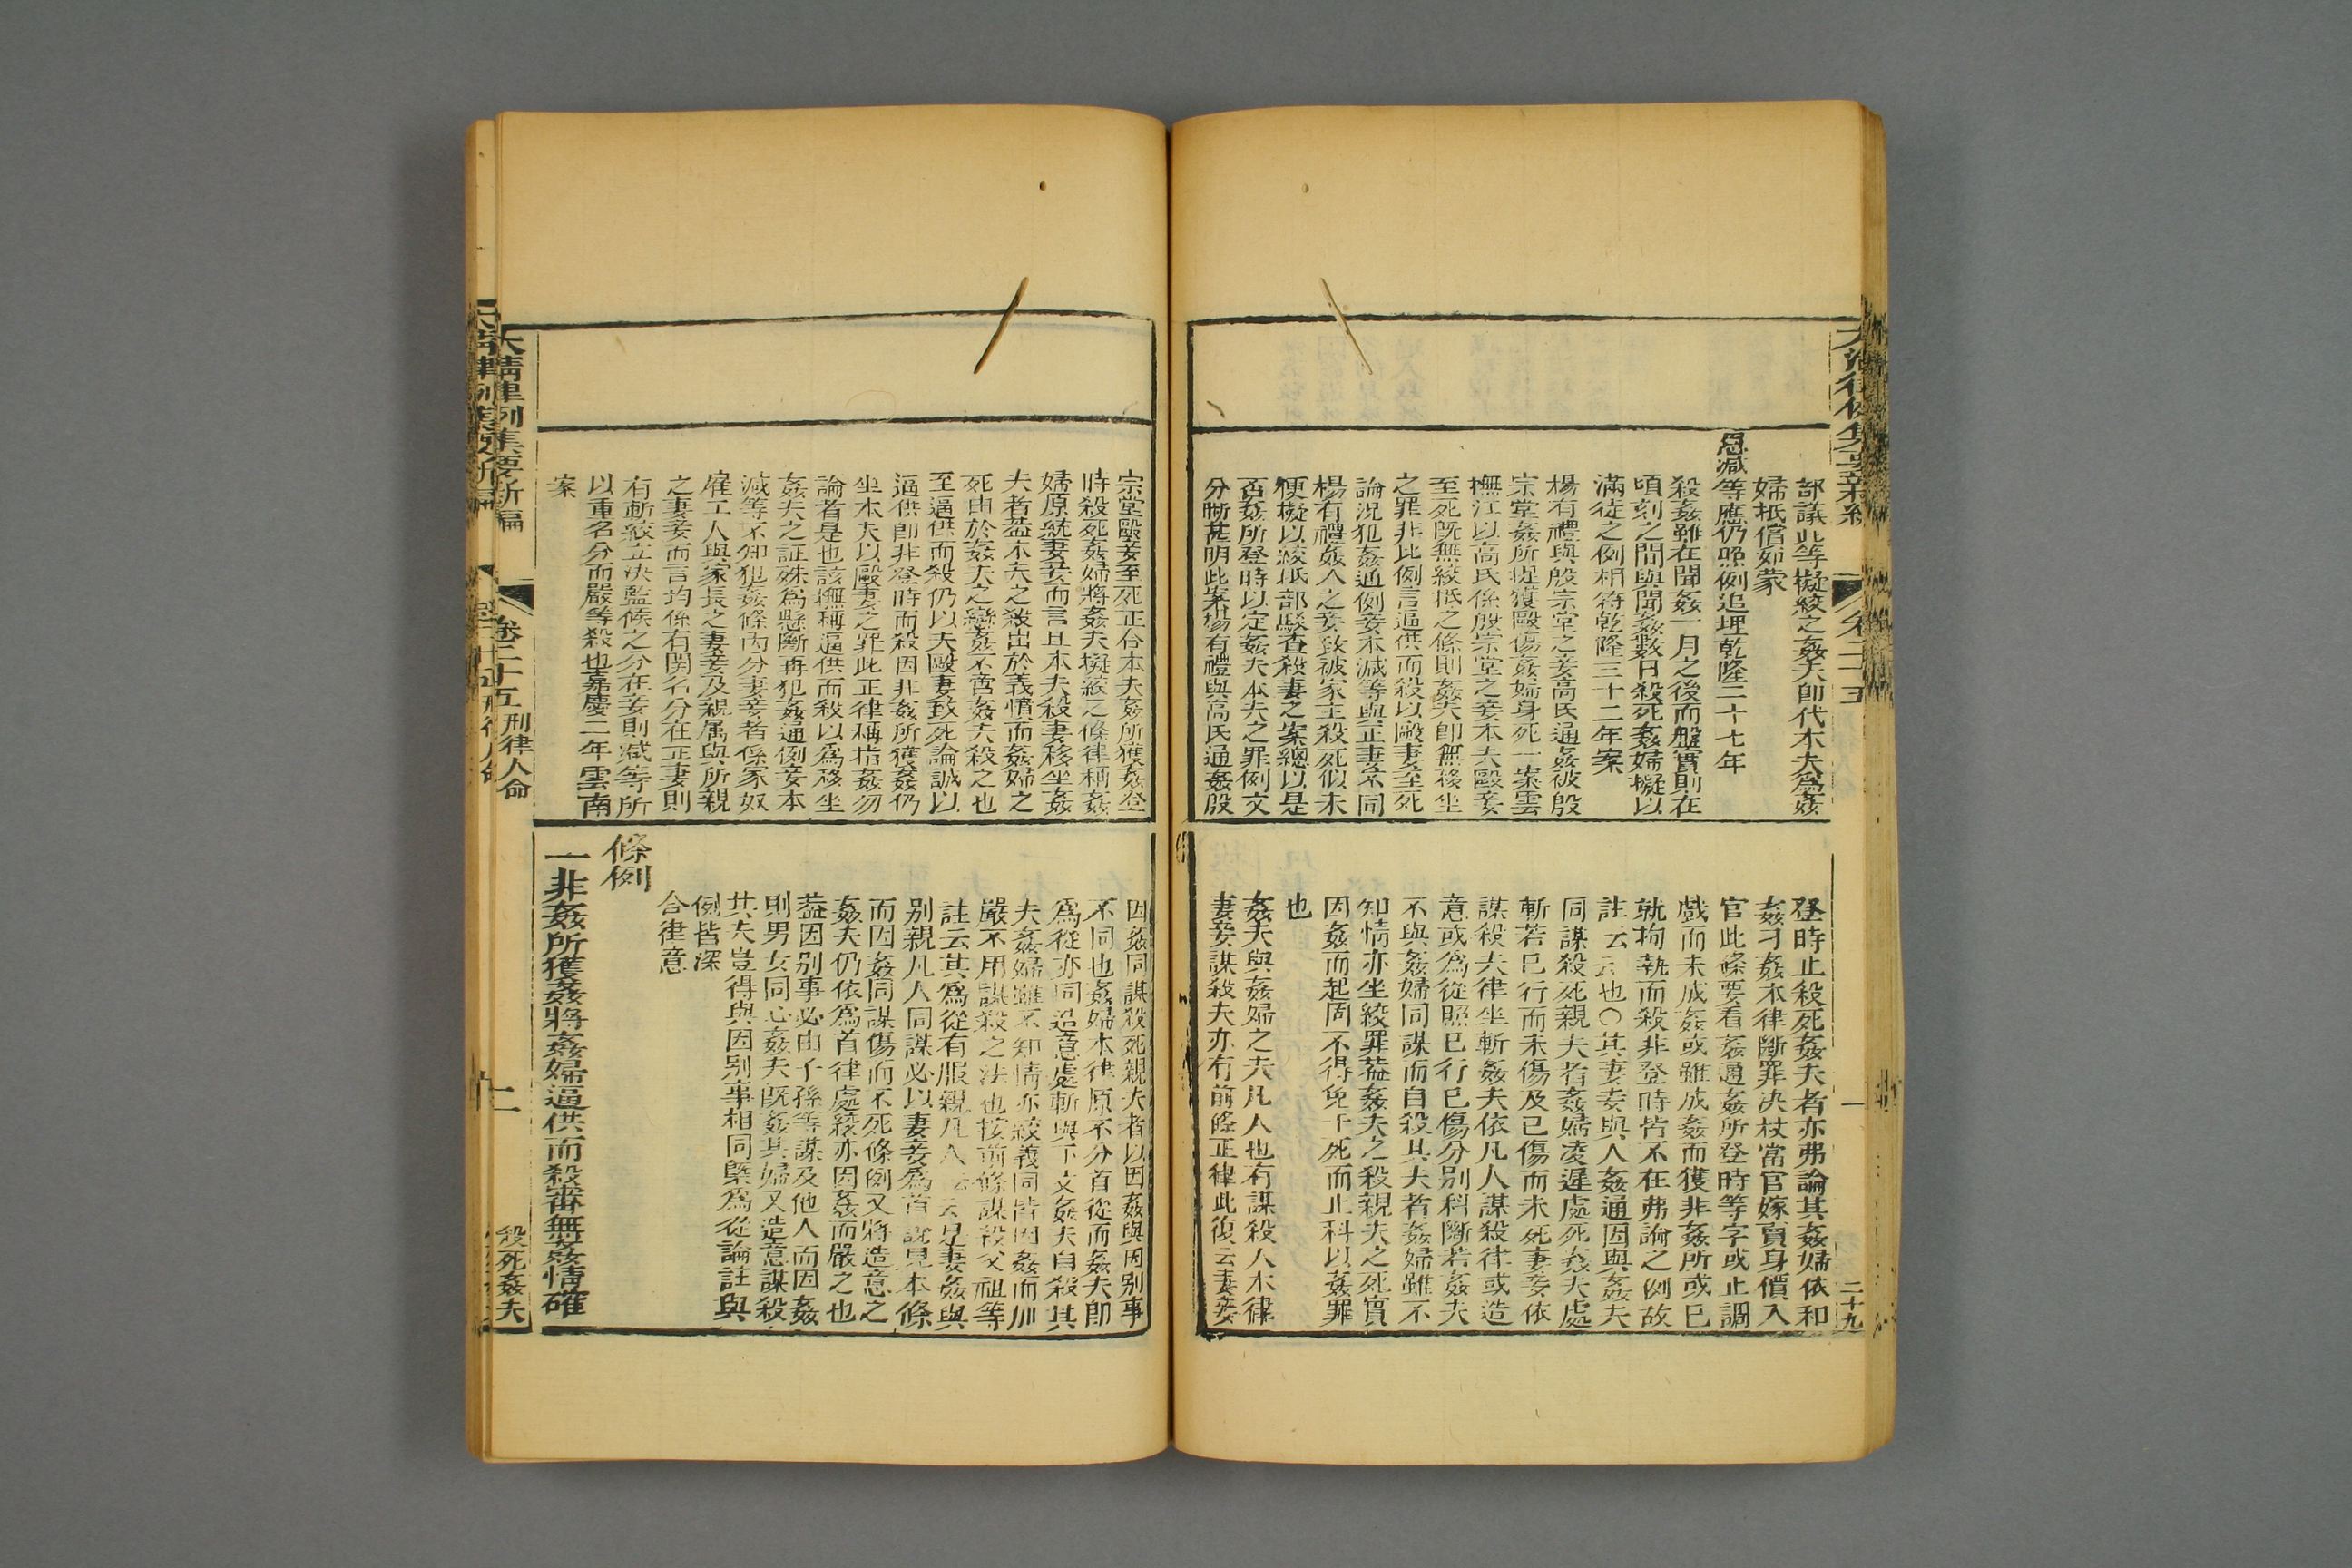 部議此等擬絞之姦夫卽代本夫爲姦
婦抵償如蒙
恩減等應仍照例追埋乾隆二十七年
殺姦雖在聞姦一月之後而盤實則在
頃刻之間與聞姦數日殺死姦婦擬以
滿徒之例相符乾隆三十二年案
楊有禮與殷宗堂之妾高氏通姦被殷
宗堂姦所捉獲毆傷姦婦身死一案雲
撫江以高氏係殷宗堂之妾本夫毆妾
至死旣無絞抵之條則姦夫卽無移坐
之罪非比例言逼供而殺以毆妻至死
論況犯姦通例妾本減等與正妻不同
楊有禮姦人之妾致被家主殺死似未
便擬以絞抵部駁查殺妻之案總以是
否姦所登時以定姦夫本夫之罪例文
分晰甚明此案楊有禮與高氏通姦殷
登時止殺死姦夫者亦弗論其姦婦依和
姦刁姦本律斷罪決杖當官嫁賣身價入
官此條要看姦通姦所登時等字或止調
戲而未成姦或雖成姦而獲非姦所或已
就拘執而殺非登時皆不在弗論之例故
註云云也○其妻妾與人姦通因與姦夫
同謀殺死親夫者姦婦凌遲處死姦夫處
斬若已行而未傷及已傷而未死妻妾依
謀殺夫律坐斬姦夫依凡人謀殺律或造
意或爲從照已行已傷分別科斷若姦夫
不與姦婦同謀而自殺其夫者姦婦雖不
知情亦坐絞罪葢姦夫之殺親夫之死實
因姦而起固不得免于死而止科以姦罪
也
姦夫與姦婦之夫凡人也有謀殺人本律
妻妾謀殺夫亦有前條正律此復云妻妾
二十九
宗堂毆妾至死正合本夫姦所獲姦登
時殺死姦婦將姦夫擬絞之條律稱姦
婦原統妻妾而言且本夫殺妻移坐姦
夫者葢本夫之殺出於義憤而姦婦之
死由於姦夫之戀姦不啻姦夫殺之也
至逼供而殺仍以夫毆妻致死論誠以
逼供卽非登時而殺因非姦所獲姦仍
坐本夫以毆妻之罪此正律稱指姦勿
論者是也該撫稱逼供而殺以爲移坐
姦夫之証殊爲懸斷再犯姦通例妾本
減等不知犯姦條內分妻妾者係家奴
雇工人與家長之妻妾及親属與所親
之妻妾而言均係有関名分在正妻則
有斬絞立決監候之分在妾則減等所
以重名分而嚴等殺也嘉慶二年雲南
案
因姦同謀殺死親夫者以因姦與因別事
不同也姦婦本律原不分首從而姦夫卽
爲從亦同造意處斬與下文姦夫自殺其
夫姦婦雖不知情亦絞義同皆因姦而加
嚴不用謀殺之法也按前條謀殺父祖等
註云其爲從有服親凡人云云是妻姦與
別親凡人同謀必以妻妾爲首說見本條
而因姦同謀傷而不死條例又將造意之
姦夫仍依爲首律處絞亦因姦而嚴之也
葢因別事必由子孫等謀及他人而因姦
則男女同心姦夫旣姦其婦又造意謀殺
共夫豈得與因別事相同槩爲從論註與
例皆深
合律意
條例
一非姦所獲姦將姦婦逼供而殺審無姦情確
大淸律例集要新編
卷二十五
刑律人命
殺死姦夫